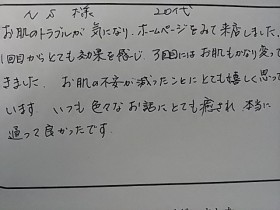 N S 様 20代
お肌のトラブルが気になり、ホームページをみて来店しました。
1回目からとても効果を感じ、3回目にはお肌もかなり変って
きました。お肌の不安が減ったことにとても嬉しく思って
います。いつも色々なお話にとても癒され、本当に
通って良かったです。